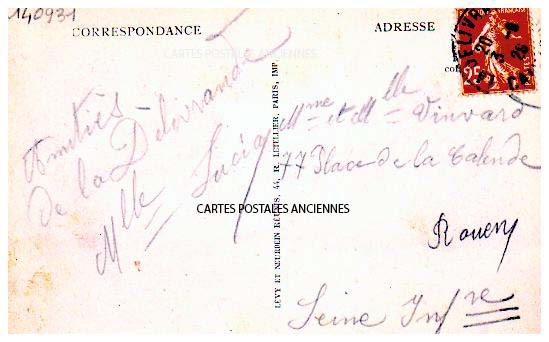 140931
CORRESPONDANCE
ADRESSE
CARTES POSTALES ANCIENNES
Amitiés
de la Délivrande
Mlle Lucia
Mme et Mlle Vinvard
77 Place de la Calende
Rouen
Seine Infre
CARTES POSTALES ANCIENNES
LEVY ET NEURDEIN RÉUNIS, 44, R. LETELLIER, PARIS, IMP.
25